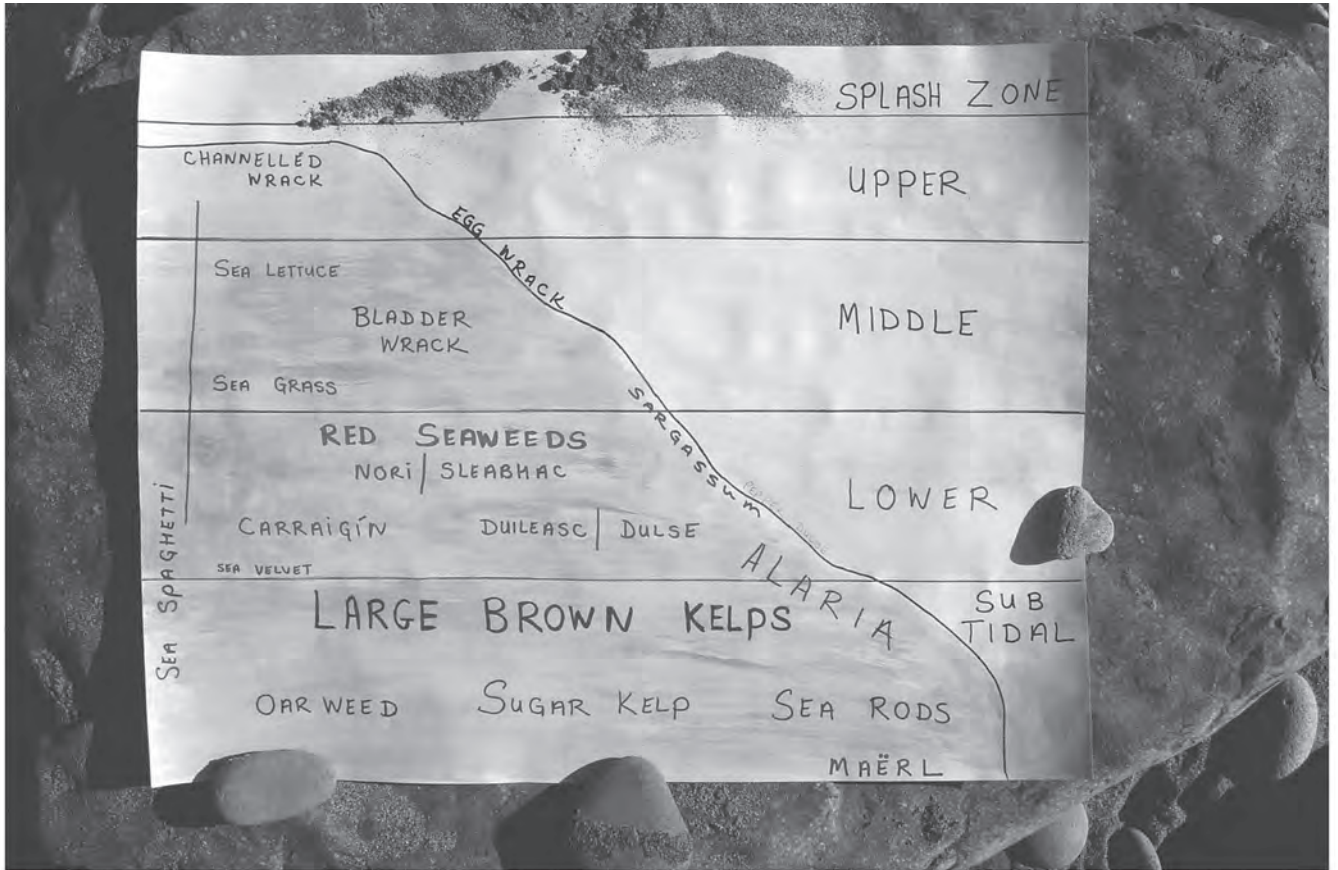 SPLASH ZONE
CHANNELLED
WRACK
UPPER
EGG WRACK
SEA LETTUCE
BLADDER
WRACK
MIDDLE
SEA GRASS
SARGASSUM
RED SEAWEEDS
NORI | SLEABHAC
LOWER
CARRAIGÍN
DUILEASC | DULSE
SEA VELVET
ALARIA
SEA SPAGHETTI
LARGE BROWN KELPS
SUB
TIDAL
OAR WEED
SUGAR KELP
SEA RODS
MAËRL